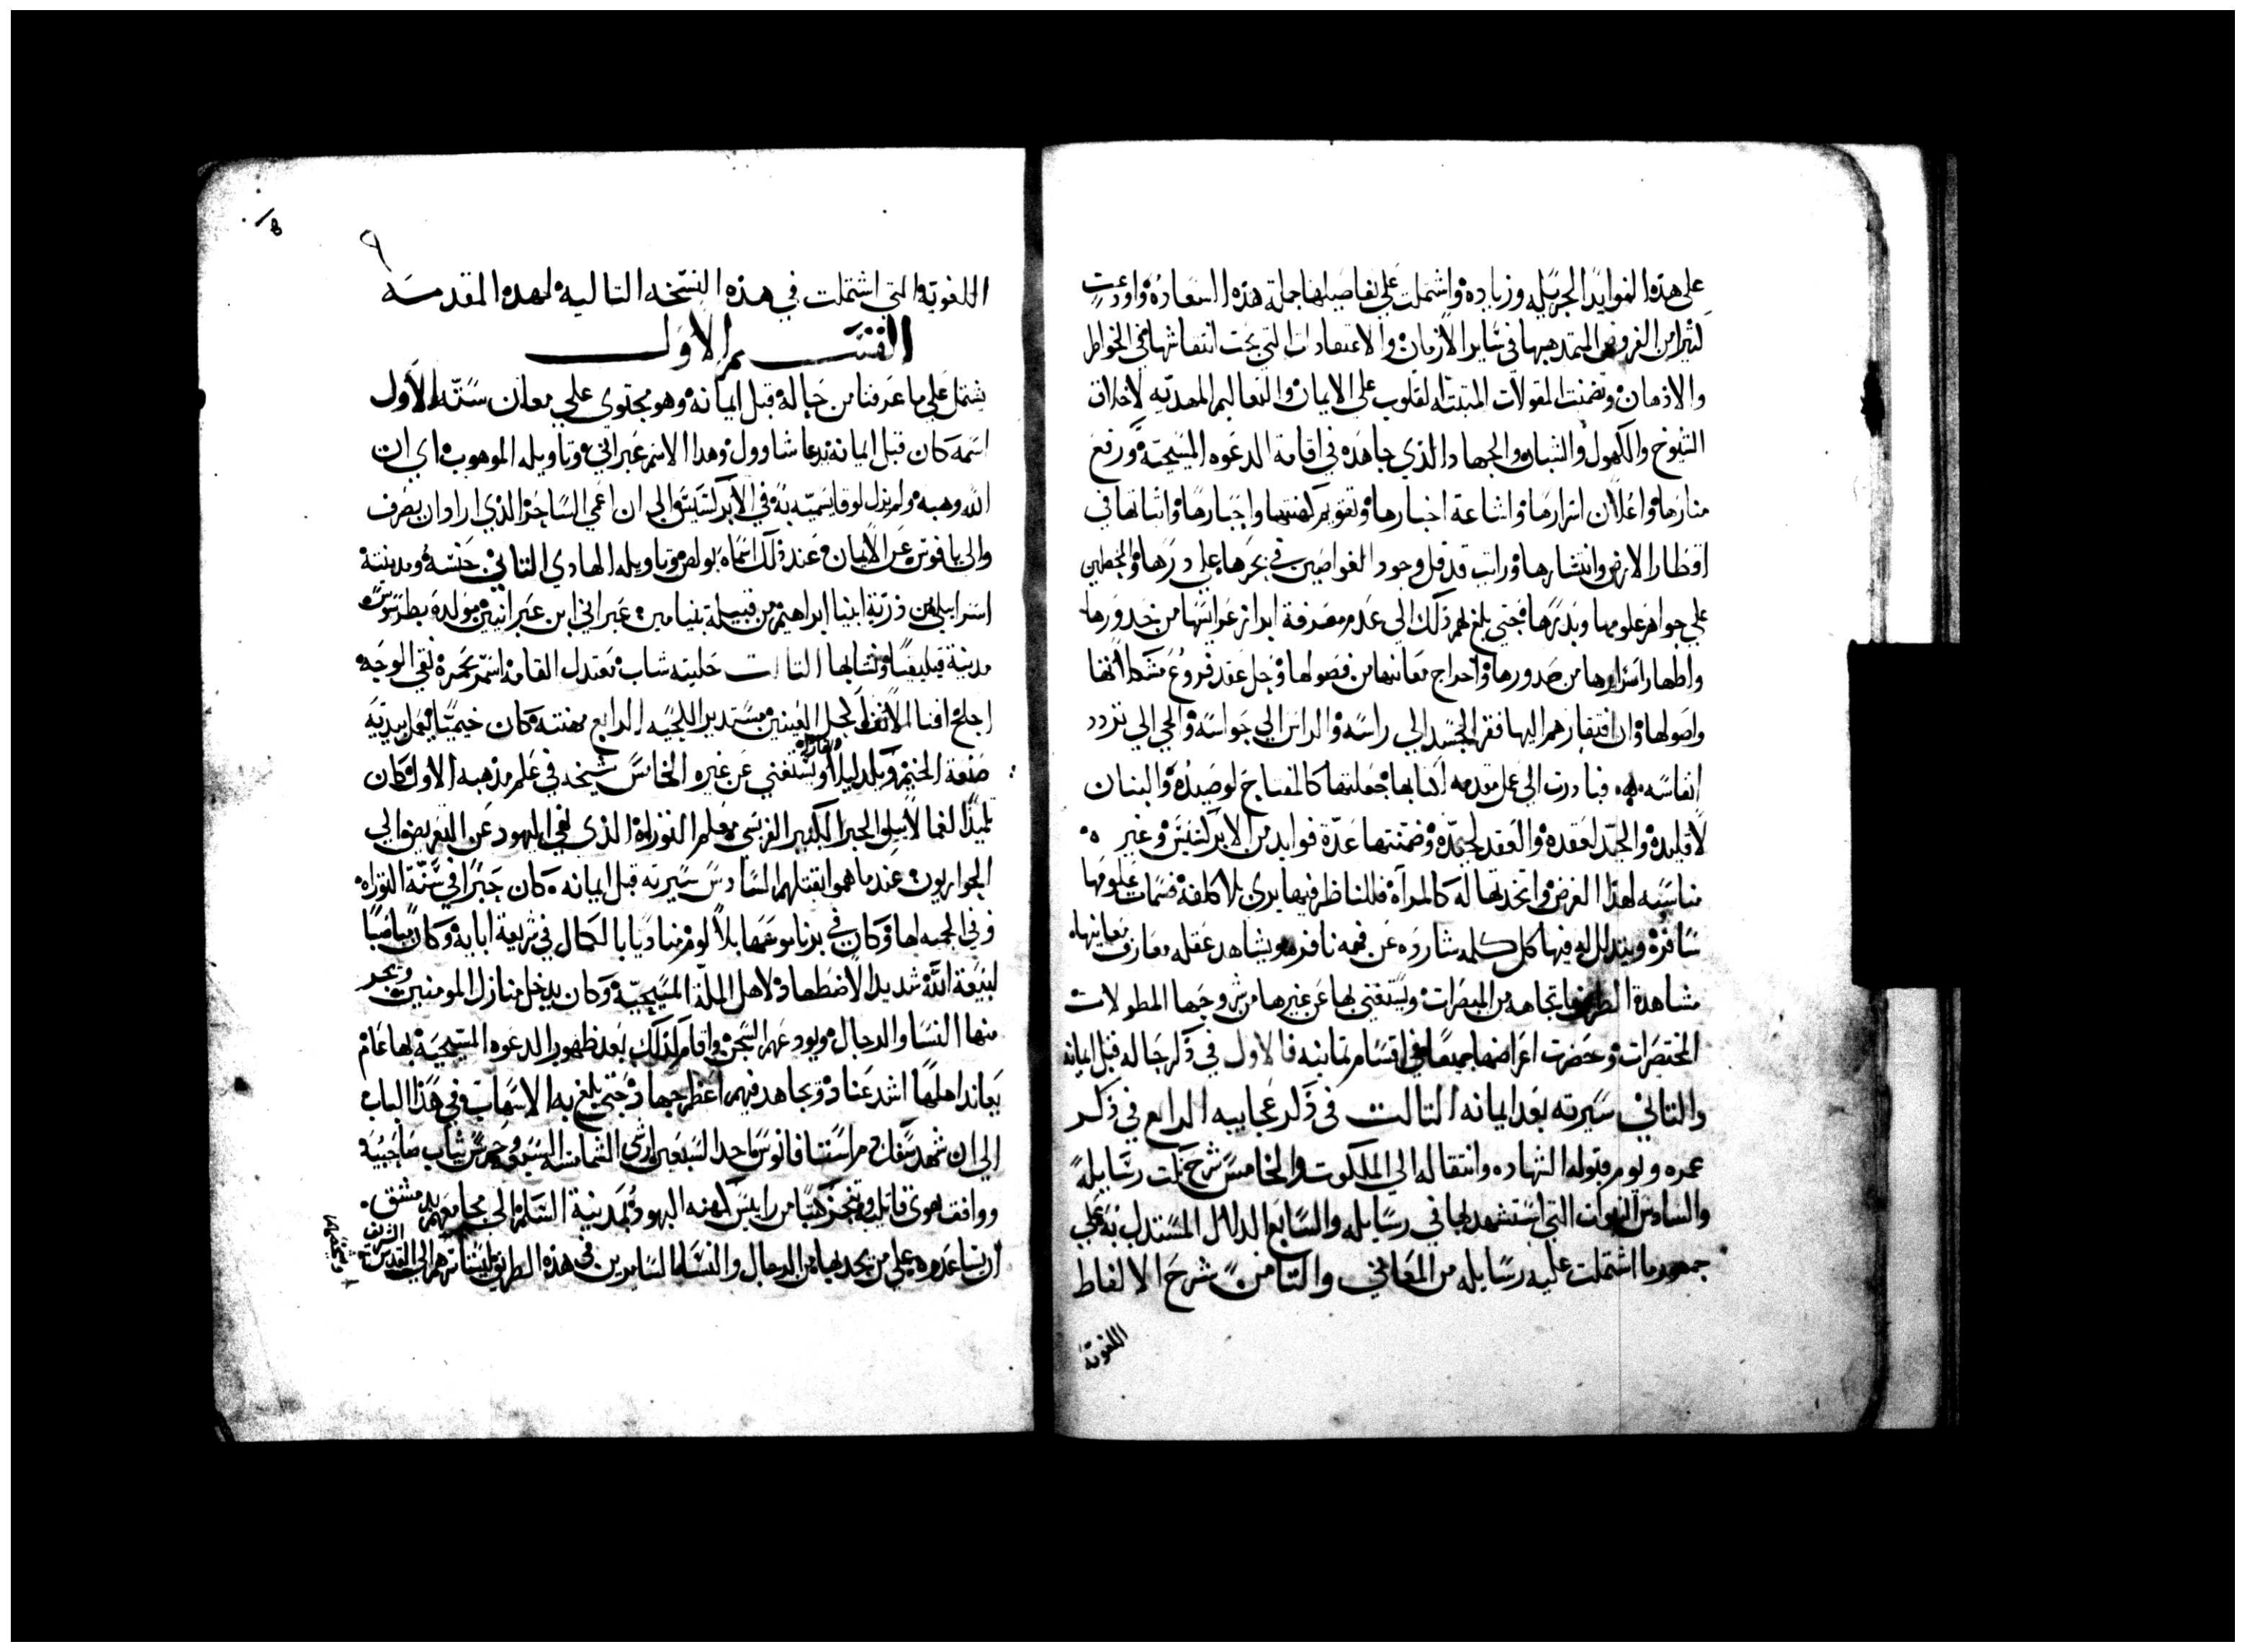 على هذه الفوايد الجزيله وزياده واشتملت على تفاصيلها جملة هذه السعاده واودعت
كثيرا من الفروض المتمذهب بها في ساير الازمان والاعتقادات التي يجب انتقاشها في الخواطر
والاذهان وتضمنت المقولات المثبتة القلوب على الايمان والتعاليم المهدبه لاخلاق
الشيوخ والكهول والشبان والجهاد الذي جاهده في اقامة الدعوه المسيحية ورفع
منارها واعلان اسرارها واشاعة اخبارها وتقويم كهنتها واحبارها واثباتها في
اقطار الارض وانتشارها ورايت قد قل وجود الغواصين في بحرها على دررها والمحصلين
على جواهر علومها وبدررها حتى بلغ لهم ذلك الى عدم معرفة ابراز عرايسها من خدورها
واظهار اسرارها من صدورها واخراج معانيها من فصولها وحل عقد فروع مشكلاتها
واصولها وان افتقارهم اليها فقر الجسد الى راسه والراس الى حواسه والحي الى تردد
انفاسه فبادرت الى عمل مقدمه لكتابها جعلتها كالمفتاح لوصيده والبنان
لاقليده والجيد لعقده والعقد لجيده وضمنتها عدة فوايد من الابركسيس وغيره
مناسبه لهذا الغرض واتخدتها له كالمرآة فللناظر فيها يرى بلا كلفة قسمات علومها
سافرة ويتدلل له فيها كل كلمه شارده عن فهمه نافره ويشاهد عقله معارف معانيها
مشاهدة الطرف تجاهه من المبصرات ويستغني بها عن غيرها من شروحها المطولات
المختصرات وحصرت اغراضها جميعا في اقسام تمانيه فالاول في ذكر حاله قبل ايمانه
والتاني سيرته بعد ايمانه التالت في ذكر عجايبه الرابع في ذكر
عمره ويوم قبوله الشهاده وانتقاله الى الملكوت والخامس شرح نكت رسايله
والسادس النبوات التي استشهد بها في رسايله والسابع الدلال المستدل به على
جمهور ما اشتملت عليه رسايله من المعاني والتامن شرح الالفاظ
اللغوية
٩
اللغوية التي اشتملت في هذه النسخه التاليه لهده المقدمه
القسم الاول
يشتمل على ما عرفنا من حاله قبل ايمانه وهو محتوي على معان سته الاول
اسمه كان قبل ايمانه يدعا شاوول وهدا الاسم عبراني وتاويله الموهوب اي ان
الله وهبه ولم يزل لوقا يسميه به في الابركسيس الى ان اعمى الساحر الذي اراد ان يصرف
والي بافوس عن الايمان وعند ذلك اسماه بولص وتاويله الهادي التاني جنسه ومدينته
اسراييلي من ذرية ابينا ابراهيم من قبيلة بنيامين عبراني ابن عبرانيين مولده بطرسوس
مدينة قيليقيا ونشا بها التالت حليته شاب معتدل القامه اسمر بحمرة نقي الوجه
اجلح اقنا الانف اكحل العينين مستدير اللحيه الرابع مهنته كان خيميا يعمل بيديه
صنعة الخيم ويستغني عن غيره الخامس شيخه في علم مذهبه الاول كان
تلميذا لغمالاييل الحبر الكبير الفريسي معلم التوراه الذي نهى اليهود عن التعرض الى
الحواريون عندما هموا بقتلهم السادس سيرته قبل ايمانه كان حبرا في سنة التوراه
وفي المحبه لها وكان في بر ناموسها بلا لوم مناديا بالكمال في شريعة ابايه وكان مناصبا
لبيعة الله شديد الاضطهاد لاهل الملة المسيحية وكان يدخل منازل المومنين ويجر
منها النسا والرجال ويودعهم السجن واقام كذلك بعد ظهور الدعوه المسيحية بها عام
يعاند اهلها اشد عناد ويجاهد فيهم اعظم جهاد حتى بلغ به الاسهاب في هذا الباب
الى ان شهد سفك دم اسطفانوس احد السبعين راس الشمامسة السبعه وحرس ثياب صاحبيه
ووافق هوى قاتليه وتنجز كتبا من راييس كهنه اليهود بمدينة السلم الى مجامعهم بدمشق
ان تساعدوه على من يجدها من الرجال والنسا السايرين في هذه الطريق ليشتاسرهم الى القدس الشريف